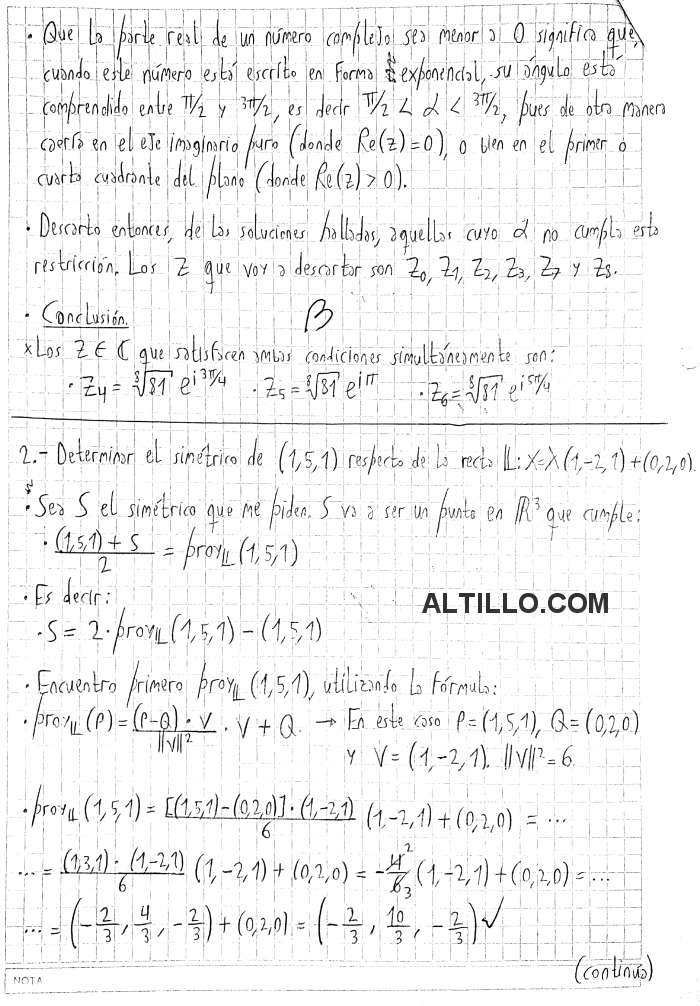 · Que la parte real de un número complejo sea menor a 0 significa que,
cuando este número está escrito en forma exponencial, su ángulo está
comprendido entre π/2 y 3π/2, es decir π/2 < α < 3π/2, pues de otra manera
caería en el eje imaginario puro (donde Re(z)=0), o bien en el primer o
cuarto cuadrante del plano (donde Re(z)>0).
· Descarto entonces, de las soluciones halladas, aquellas cuyo α no cumpla esta
restricción. Los Z que voy a descartar son Z₀, Z₁, Z₂, Z₃, Z₇ y Z₈.
· Conclusión.
B
x Los Z ∈ ℂ que satisfacen ambas condiciones simultáneamente son:
· Z₄ = ⁸√81 e^(i3π/4) · Z₅ = ⁸√81 e^(iπ) · Z₆ = ⁸√81 e^(i5π/4)
2.- Determinar el simétrico de (1,5,1) respecto de la recta 𝕃: X=λ(1,-2,1)+(0,2,0).
· Sea S el simétrico que me piden. S va a ser un punto en ℝ³ que cumple:
· ((1,5,1) + S)/2 = proy_𝕃 (1,5,1)
· Es decir:
ALTILLO.COM
· S = 2·proy_𝕃 (1,5,1) – (1,5,1)
· Encuentro primero proy_𝕃 (1,5,1), utilizando la fórmula:
· proy_𝕃 (P) = ((P-Q)·V)/‖V‖² · V + Q. → En este caso P=(1,5,1), Q=(0,2,0)
y V=(1,-2,1). ‖V‖²=6.
· proy_𝕃 (1,5,1) = ([(1,5,1)-(0,2,0)]·(1,-2,1))/6 (1,-2,1) + (0,2,0) = ...
... = ((1,3,1)·(1,-2,1))/6 (1,-2,1) + (0,2,0) = -4²/6₃ (1,-2,1) + (0,2,0) = ...
... = (-2/3, 4/3, -2/3) + (0,2,0) = (-2/3, 10/3, -2/3) ✓
(continúa)
NOTA